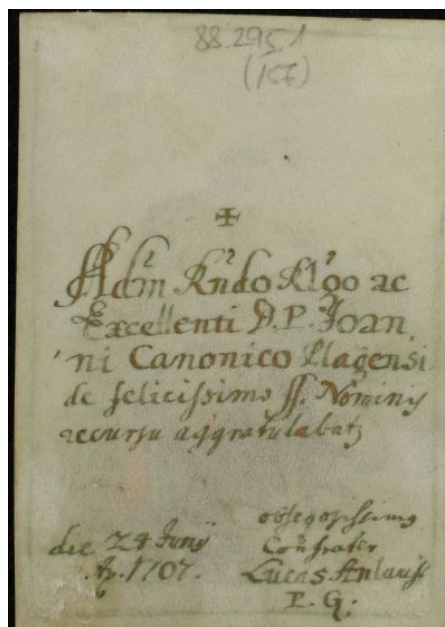 88.295.1
(156)
✠
Adm̃ Rñdo Rlgõ ac
Excellenti D. P. Joan
ni Canonico Plagensi
de felicissimo ss. Nominis
recursu aggratulabatz
die 24 Junij
Aõ. 1707.
obseqosissimg
Confrater
Lucas
P. G: